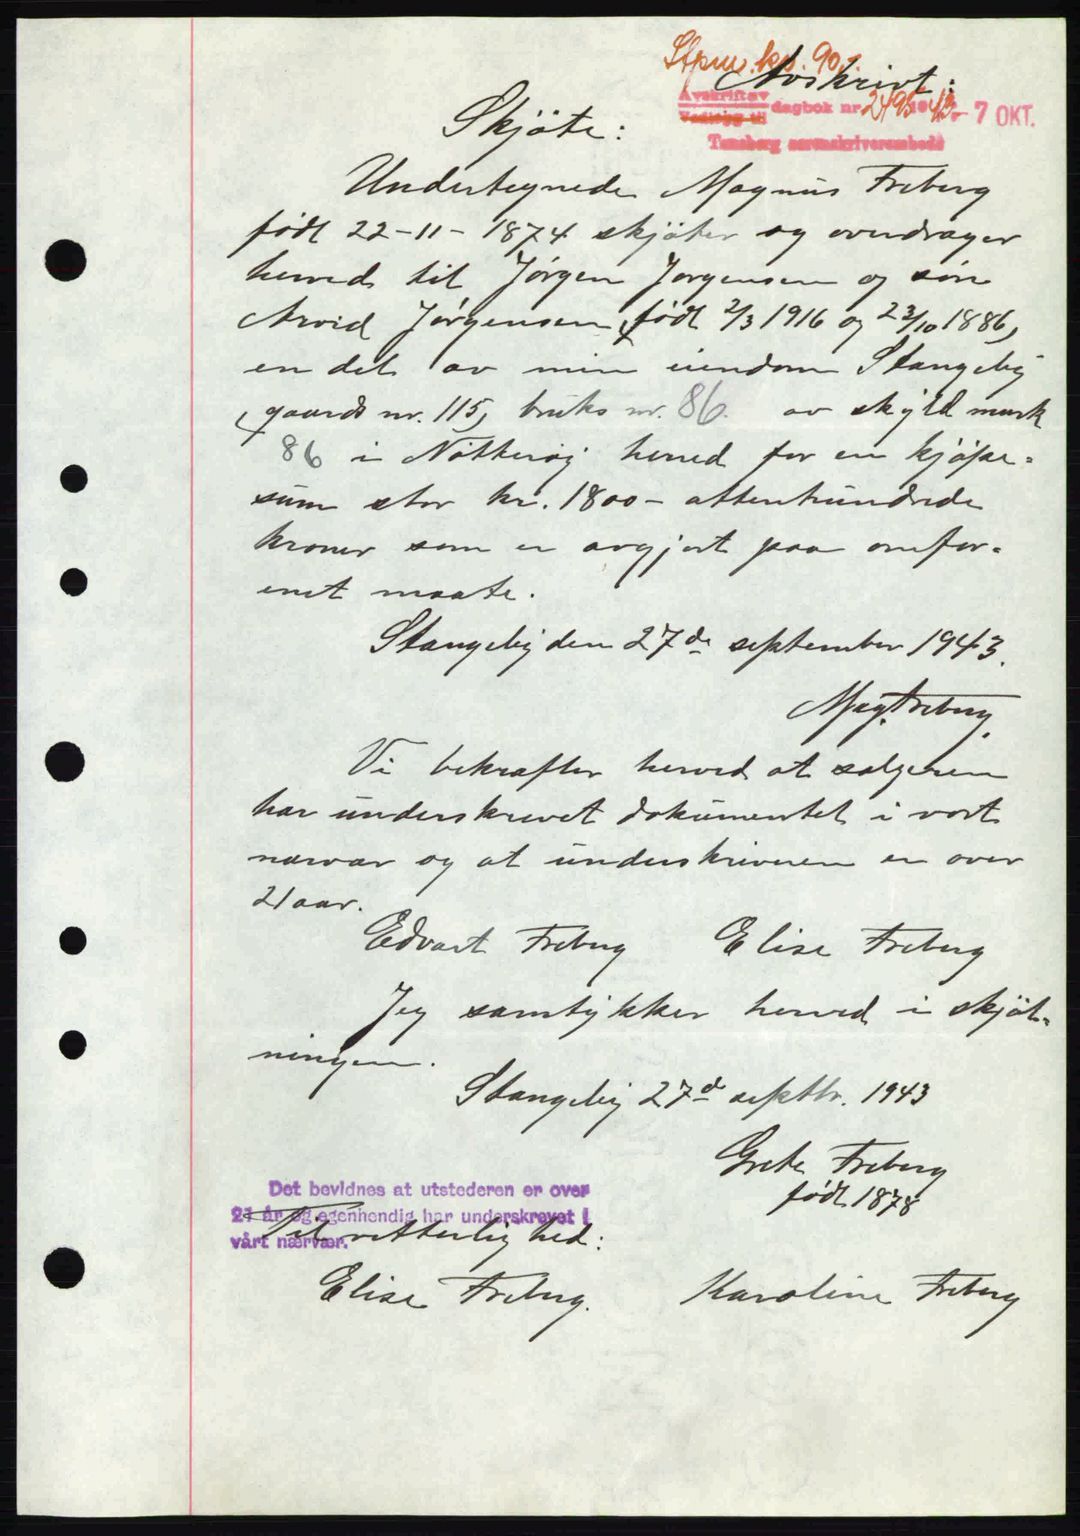 Stpm. kr. 90.-
Avskrivt:
Avskrift av
Vedlegg til
dagbok nr. 2495 1943 - 7 OKT.
Tønsberg sorenskriverembede
Skjöte:
Undertegnede Magnus Freberg
född 22-11-1874 skjöter og overdrager
herved til Jörgen Jorgensen og sön
Arvid Jörgensen, född 2/3 1916 og 23/10 1886,
en del av min eiendom Stangeby
gaards nr. 115, bruks nr. 86 av skyld mark
86 i Nötteröy herred for en kjöpe-
sum stor kr. 1800- attenhundrede
kroner som er avgjort paa omfor-
enet maate.
Stangeby den 27de september 1943.
Mag. Freberg.
Vi bekrafter herved at salgeren
har underskrevet dokumentet i vort
narvar og at underskriveren er over
21 aar.
Edvart Freberg Elise Freberg
Jeg samtykker herved i skjöt-
ningen.
Stangeby 27d septbr. 1943
Grete Freberg
född 1878
Det bevidnes at utstederen er over
21 år og egenhendig har underskrevet i
vårt nærvær.
Til vitterlighed:
Elise Freberg. Karoline Freberg